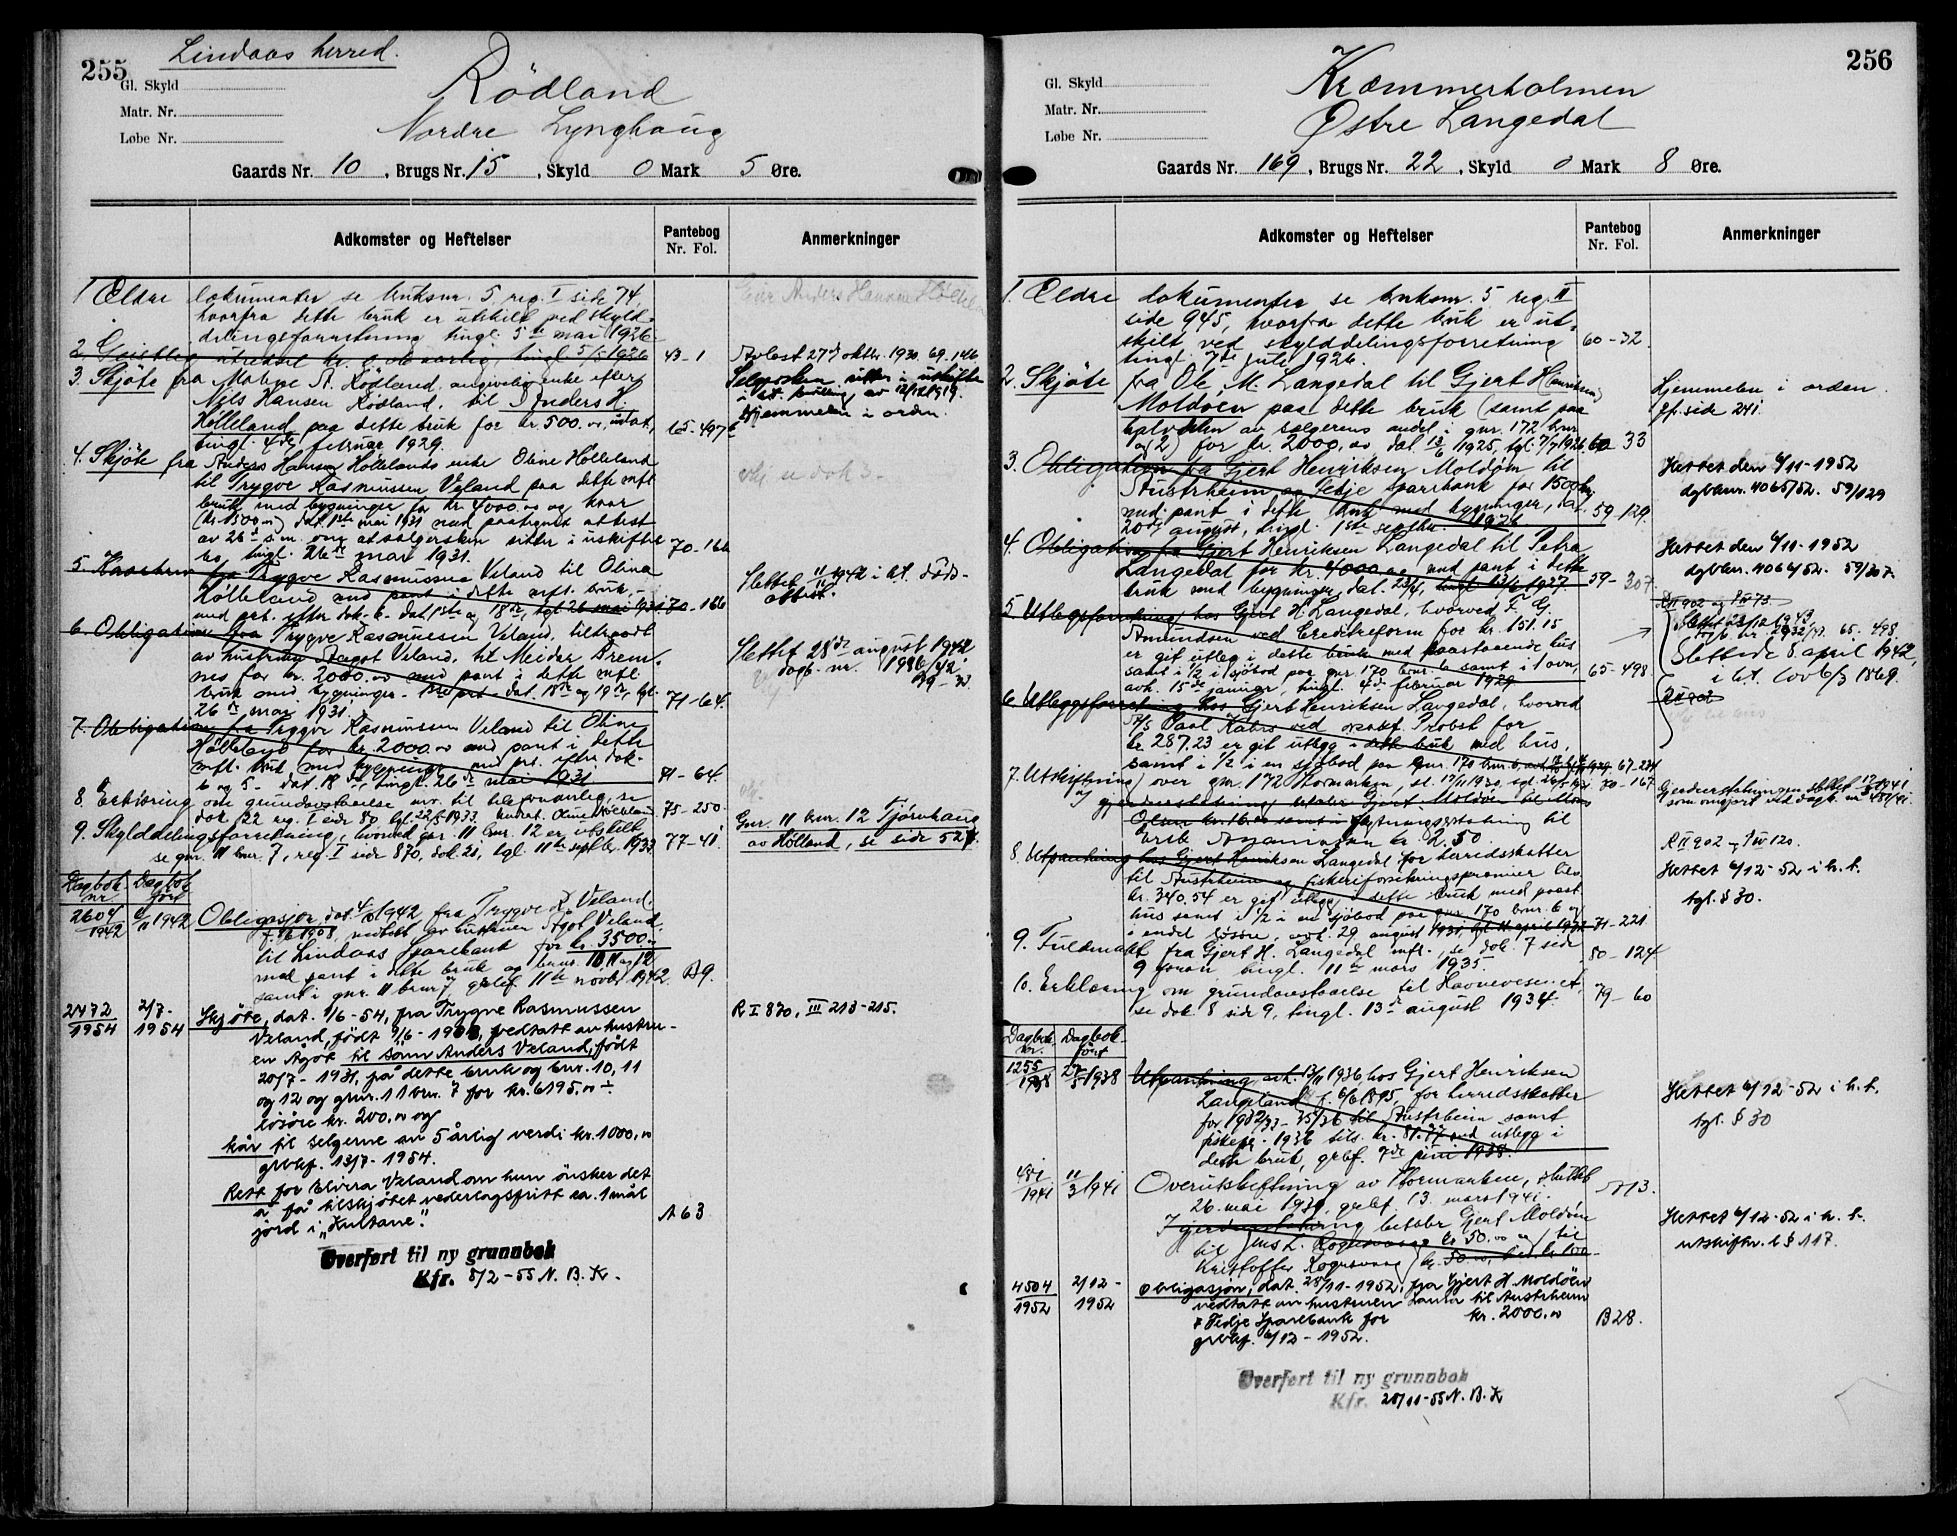 255
Lindaas herred.
Gl. Skyld
Matr. Nr.
Løbe Nr.
Rödland
Nordre Lynghaug
Gaards Nr. 10, Brugs Nr. 15, Skyld 0 Mark 5 Øre.
Adkomster og Heftelser
Pantebog
Nr. Fol.
Anmerkninger
1 Ældre dokumenter se bruksnr. 5, reg. I side 74,
hvorfra dette bruk er utskilt ved skyld-
delingsforretning tingl. 5te mai 1926
2. Geistleg kr. 0,06 aarlig, tingl. 5/5-1926 43-1 Avløst 27de oktbr. 1930. 69.146
3. Skjöte fra Malene A. Rödland, angivelig enke efter
Nils Hansen Rödland, til Anders H.
Hölleland paa dette bruk for kr. 500.00, udat.,
tingl. 4de februar 1929. 65-497
Hjemmelen i orden.
4. Skjöte fra Anders Hansen Höllelands enke Oline Hölleland
til Trygve Rasmussen Veland paa dette mft.
bruk med bygninger for kr. 4000.00 og kaar
(kr. 1500.00) dat. 1ste mai 1931 med paategnet attest
av 26de s.m. om at sælgersken sitter i uskiftet
bo, tingl. 26de mai 1931. 70-166
vlj se dok 3-
5. Kaarbrev fra Trygve Rasmussen Veland til Olina
Hölleland med pant i dette mft. bruk,
med prt. efter dok. 6. dat. 1ste og 18de, tgl. 26 mai 1931 70-166
Slettet 11/11 1942 i h.t. døds-
attest.
6. Obligation fra Trygve Rasmussen Veland, tiltraadt
av hustruen Aagot Veland, til Meidar Brem-
nes for kr. 2000.00 med pant i dette mft.
bruk med bygninger. 1ste prt. dat. 18de og 19de, tgl.
26de mai 1931. 71-64.
Slettet 28de august 1942
dagb. nr. 1986/42
7. Obligation fra Trygve Rasmussen Veland til Oline
Hölleland for kr. 2000.00 med pant i dette
mft. bruk med bygninger med prt. efter dok.
6 og 5. dat. 18de, tingl. 26de mai 1931 71-64.
8. Erklæring om grundavstaaelse m.v. til telefonanlæg, se
dok. 22 reg. I side 80 tgl. 22/5-1933. 75-250.
9. Skylddelingsforretning, hvorved gnr. 11 bnr. 12 er utskilt,
se gnr. 11 bnr. 7, reg. I side 870, dok. 21, tgl. 11te septbr. 1933 77-41.
Gnr. 11 bnr. 12 Tjörnhaug
av Hölland, se side 527.
Dagbok
nr
Dagbok
ført
2604
1942
6/11 1942
Obligasjon, dat. 4/11 1942 fra Trygve R. Veland,
f. 9/6 1908, vedtatt av hustruen Agot Veland,
til Lindaas Sparebank for kr. 3500.00
med pant i dette bruk og bnr. 10, 11 og 12
samt i gnr. 11 bnr. 7 grbf. 11te novbr. 1942 A9.
2472
1954
2/7-
1954
Skjöte, dat. 1/6-54, fra Trygve Rasmussen
Veland, født 9/6-1908, vedtatt av hustru-
en Ågot til sönn Anders Veland, født
20/7-1931, på dette bruk og bnr. 10, 11
og 12 og gnr. 11 bnr. 7 for kr. 6195.00 ÷
lösöre kr. 200.00 og
kår til selgerne av 5 årlig verdi kr. 1000.00
grbf. 13/7-1954.
Rett for Elvira Veland om hun ønsker det
å få tilskjötet vederlagsfritt ca. 1 mål
jord i „Kultane". A63
R I 870, III 213-215.
Overført til ny grunnbok
Kfr. 5/2-55 N. B. Kr.
256
Gl. Skyld
Matr. Nr.
Løbe Nr.
Kræmmerholmen
Østre Langedal
Gaards Nr. 169, Brugs Nr. 22, Skyld 0 Mark 8 Øre.
Adkomster og Heftelser
Pantebog
Nr. Fol.
Anmerkninger
1. Ældre dokumenter se bruksnr. 5 reg. II
side 945, hvorfra dette bruk er ut-
skilt ved skylddelingsforretning
tingl. 7de juli 1926. 60-32
2. Skjöte fra Ole M. Langedal til Gjert Henriksen
Moldöen paa dette bruk (samt paa
halvdelen av sælgerens andel i gnr. 172 bnr.
og 2) for kr. 2000,00 dat. 13/6 1925, tgl. 7/7 1926 60-33
Hjemmelen i orden.
jfr. side 241.
3. Obligation fra Gjert Henriksen Moldöen til
Austrheim og Fedje Sparebank for 1500 kr.
med pant i dette bruk med bygninger, dat.
20de august, tingl. 1ste septbr. 1926 59-129.
Slettet den 4/11-1952
dgbknr. 4065/52. 59/129
4. Obligation fra Gjert Henriksen Langedal til Petra
Langedal for kr. 4000,00 med pant i dette
bruk med bygninger, dat. 23/4, tingl. 13/5 1927 59-307.
Slettet den 4/11-1952
dgbknr. 4066/52. 59/307.
5. Utlegsforretning hos Gjert H. Langedal, hvorved F. G.
Amundsen ved Creditreform for kr. 151.15
er git utleg i dette bruk med paastaaende hus
samt i 1/2 i sjöbod paa gnr. 170 bnr. 6 samt i 1 ovn,
avh. 15de januar, tingl. 4de februar 1929 65-498.
R II 902 og III 73.
Slettede 8 april 1942,
i h.t. lov 6/3 1869.
6. Utlegsforretning hos Gjert Henriksen Langedal, hvorved
A/S Paal Kahrs ved orsakf. Probst for
kr. 287.23 er git utlegg i dette bruk med hus,
samt i 1/2 i en sjöbod paa gnr. 170 bnr. 6, 1929 67-224
R II 902
7. Utskiftning over gnr. 172 Hormarken, sl. 17/11 1930, tgl. 26/5 1931 70-167
og gjerdeerstatning betaler Gjert Moldöen til Mons
Olsen til
Erik kr. 2.50
Gjerdeerstatningen slettet 17/3 1941
som omgjort ved dagb. nr. 481/41.
R II 902 og III 120.
8. Utpantning hos Gjert Henriksen Langedal for herredsskatter
til Austrheim og fiskeriforsikringspremier hvor
kr. 340.54 er git utlegg i dette bruk med paast.
hus samt i 1/2 i en sjöbod paa gnr. 170 bnr. 6 og
i endel lösöre, avh. 29 august 1931, tgl. 11 april 1932 71-221
Slettet 6/12-52 i h.t.
tgl. § 30.
9. Fuldmakt fra Gjert H. Langedal mft., se dok. 7 side
9 foran, tingl. 11te mars 1935. 80-124
10. Erklæring om grundavstaaelse til Havnevesenet,
se dok. 8 side 9, tingl. 13de august 1934. 79-60
Dagbok
nr.
Dagbok
ført
1255
1938
27/5 1938
Utpantning, avh. 13/11 1936 hos Gjert Henriksen
Langeland f. 6/6 1895, for herredsskatter
for 1932/33-35/36 til Austrheim samt
fiskepr. 1936 tils. kr. 81.97 med utlegg i
dette bruk, grbf. 7de juni 1938.
Slettet 6/12-52 i h.t.
tgl. § 30
481
1941
11/3 1941
Overutskiftning av Hormarken, sluttet
26. mai 1939, grbf. 13. mars 1941. A13.
I gjerdeerstatning betaler Gjert Moldöen
til Jens L. Rognsvaag kr. 50.00 og til
Kristoffer Rognsvaag kr. 50.00,
Slettet 6/12-52 i h.t.
utskiftn. l. § 117.
4504
1952
2/12-
1952
Obligasjon, dat. 28/11-1952, fra Gjert H. Moldöen
vedtatt av hustruen Laura til Austrheim
& Fedje Sparebank for kr. 2000.00
grbf. 6/12-1952. B28.
Overført til ny grunnbok
Kfr. 28/11-55 N. B. Kr